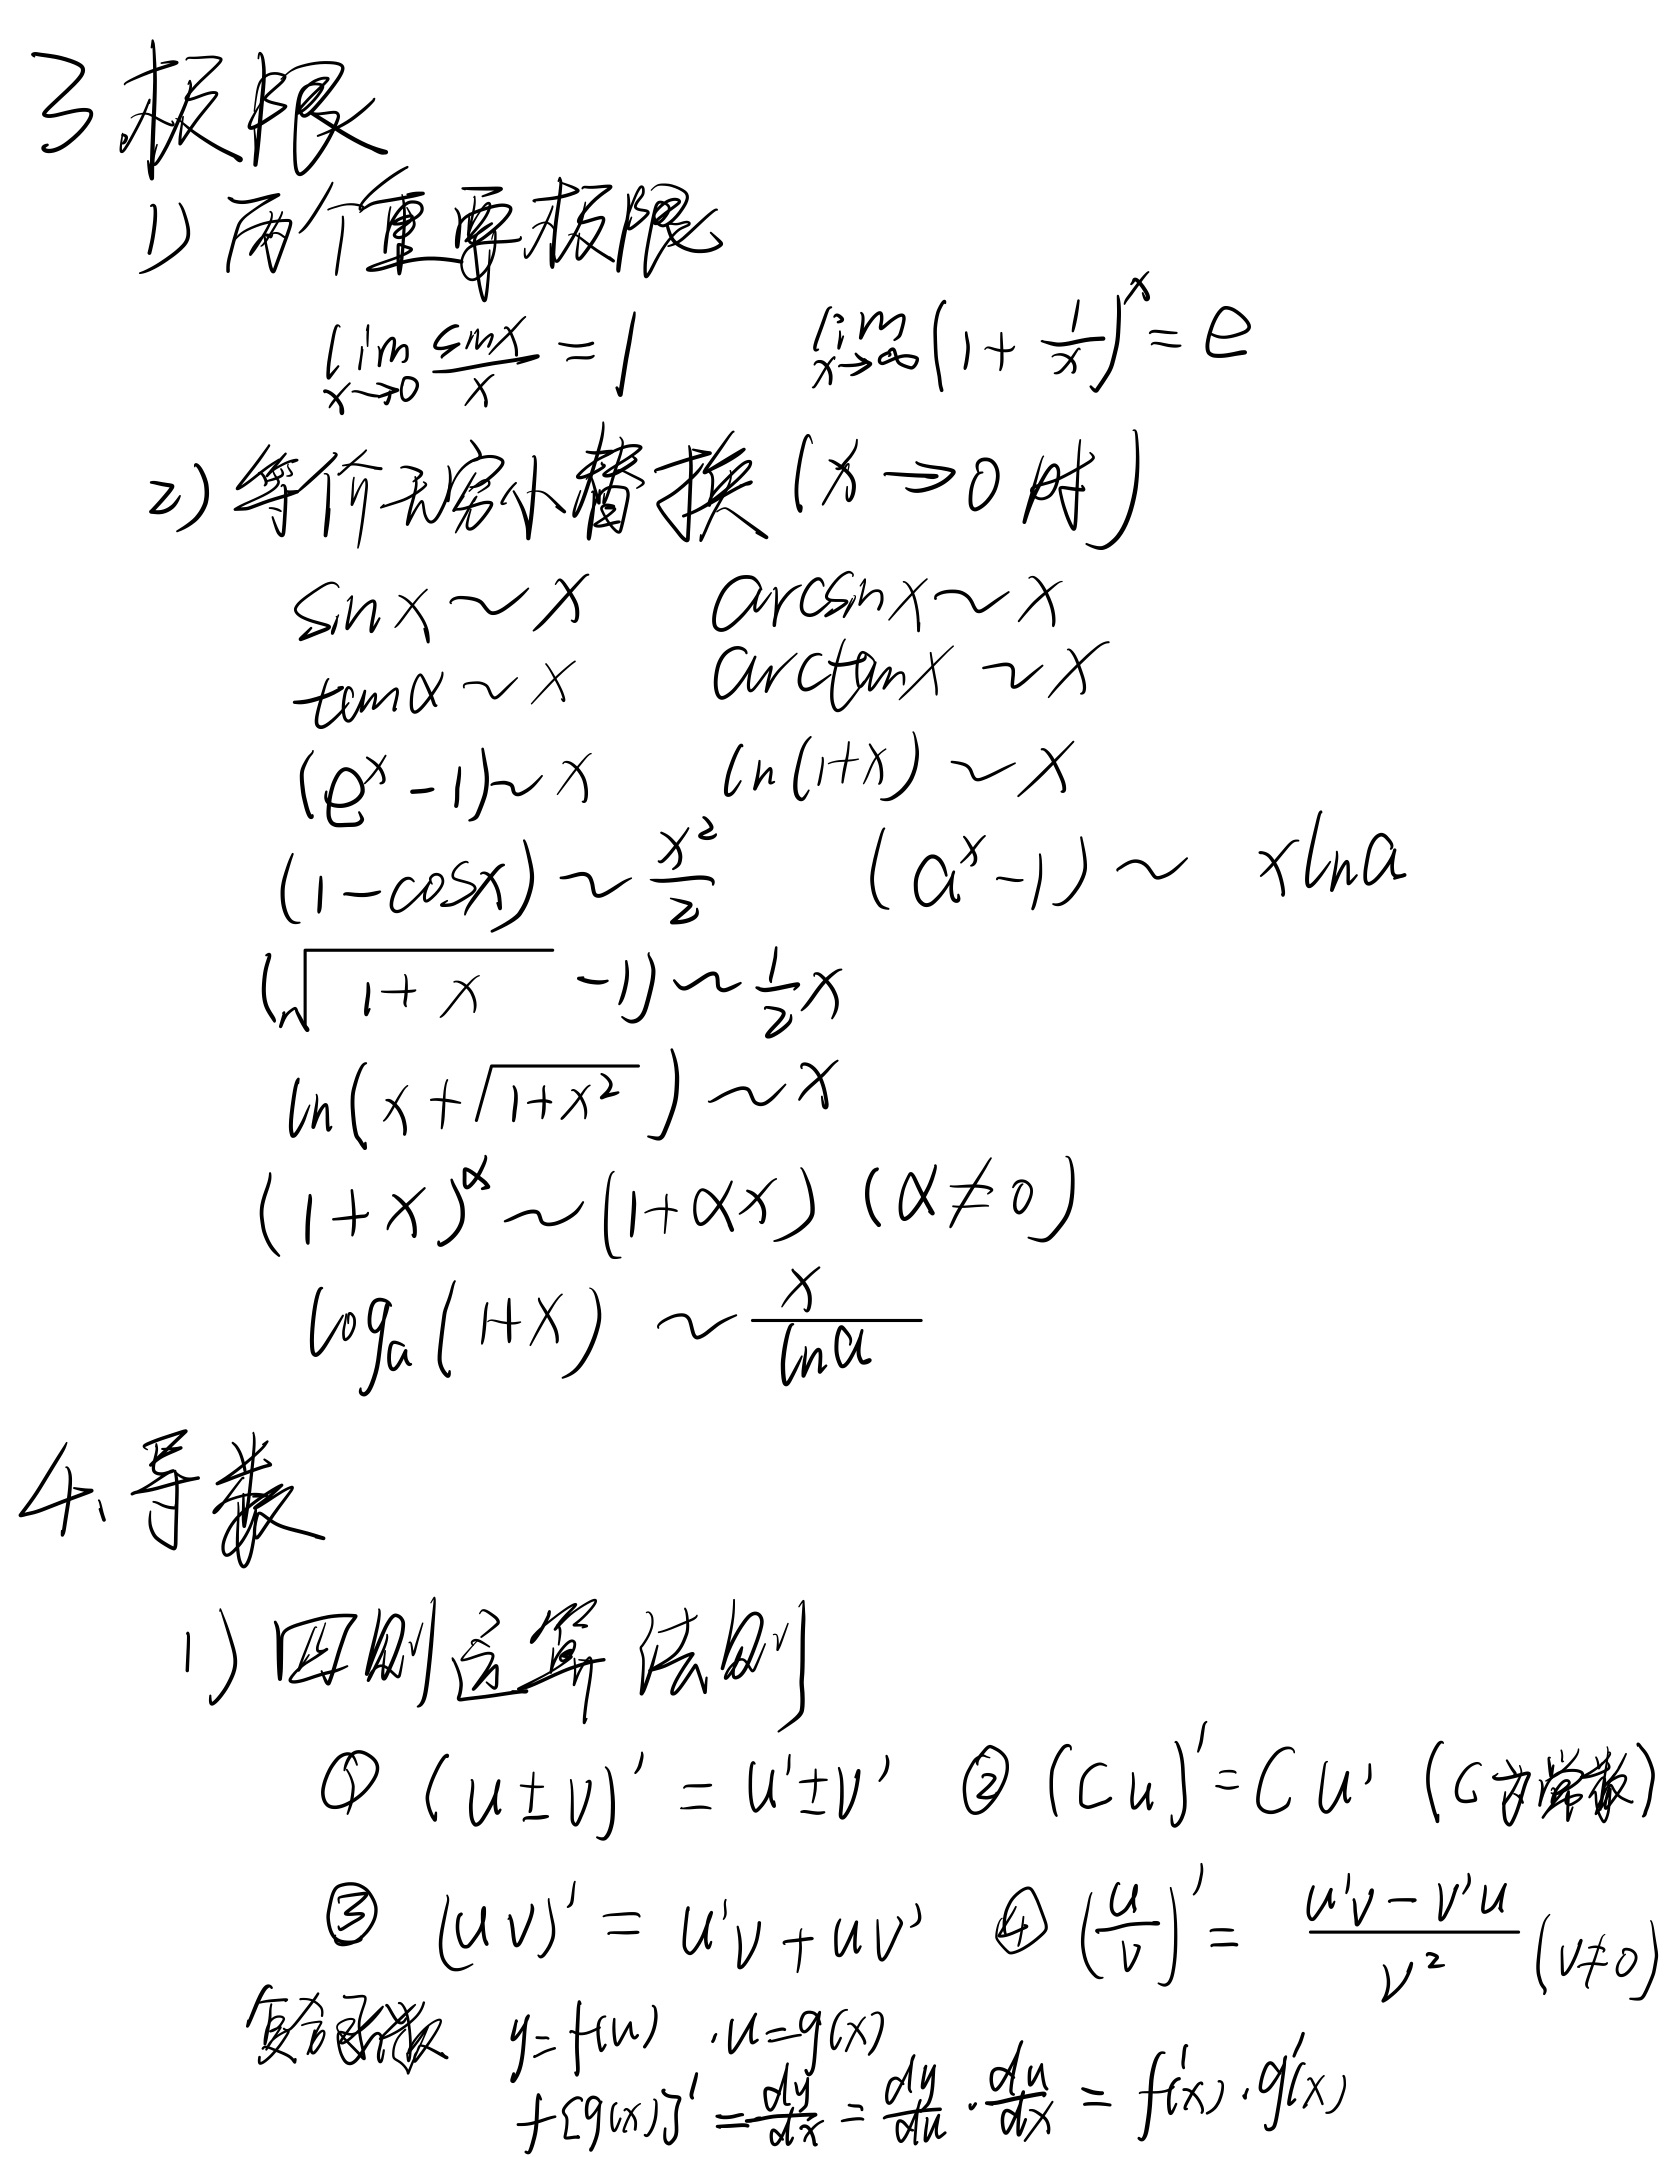 3.极限
1) 两个重要极限
lim_{x→0} sinx/x = 1    lim_{x→∞} (1 + 1/x)^x = e
2) 等价无穷小替换 (x→0时)
sinx ~ x    arcsinx ~ x
tanα ~ x    arctanx ~ x
(e^x - 1) ~ x    ln(1+x) ~ x
(1-cosx) ~ x²/2    (a^x - 1) ~ xlna
(√(1+x) - 1) ~ 1/2 x
ln(x+√(1+x²)) ~ x
(1+x)^α ~ (1+αx) (α≠0)
log_a(1+x) ~ x/lna
4.导数
1) 四则运算法则
① (u±v)' = u'±v'  ② (Cu)' = Cu' (C为常数)
③ (uv)' = u'v+uv'  ④ (u/v)' = (u'v-v'u)/v² (v≠0)
复合函数  y=f(u) . u=g(x)
f[g(x)]' = dy/dx = dy/du · du/dx = f'(x)·g'(x)